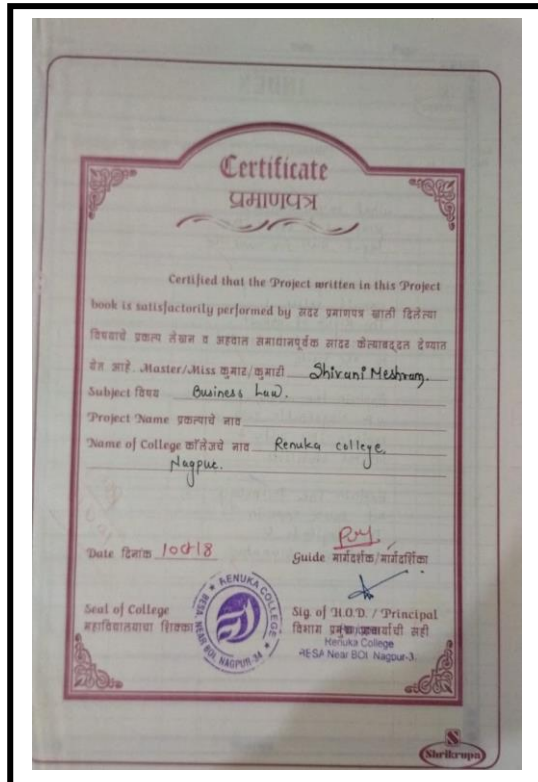 Certificate
प्रमाणपत्र
Certified that the Project written in this Project
book is satisfactorily performed by सदर प्रमाणपत्र खाली दिलेल्या
विषयाचे प्रकल्प लेखन व अहवाल समाधानपूर्वक सादर केल्याबद्दल देण्यात
येत आहे. Master/Miss कुमार/कुमारी Shivani Meshram.
Subject विषय Business Law.
Project Name प्रकल्पाचे नाव
Name of College कॉलेजचे नाव Renuka college,
Nagpur.
Date दिनांक
Guide मार्गदर्शक/मार्गदर्शिका
Seal of College
महाविद्यालयाचा शिक्का
RENUKA COLLEGE
RESA NEAR BOI, NAGPUR-34
Sig. of H.O.D. / Principal
विभाग प्रमुख/प्राचार्यांची सही
Renuka College
RESA Near BOI Nagpur-3
Shrikrupa